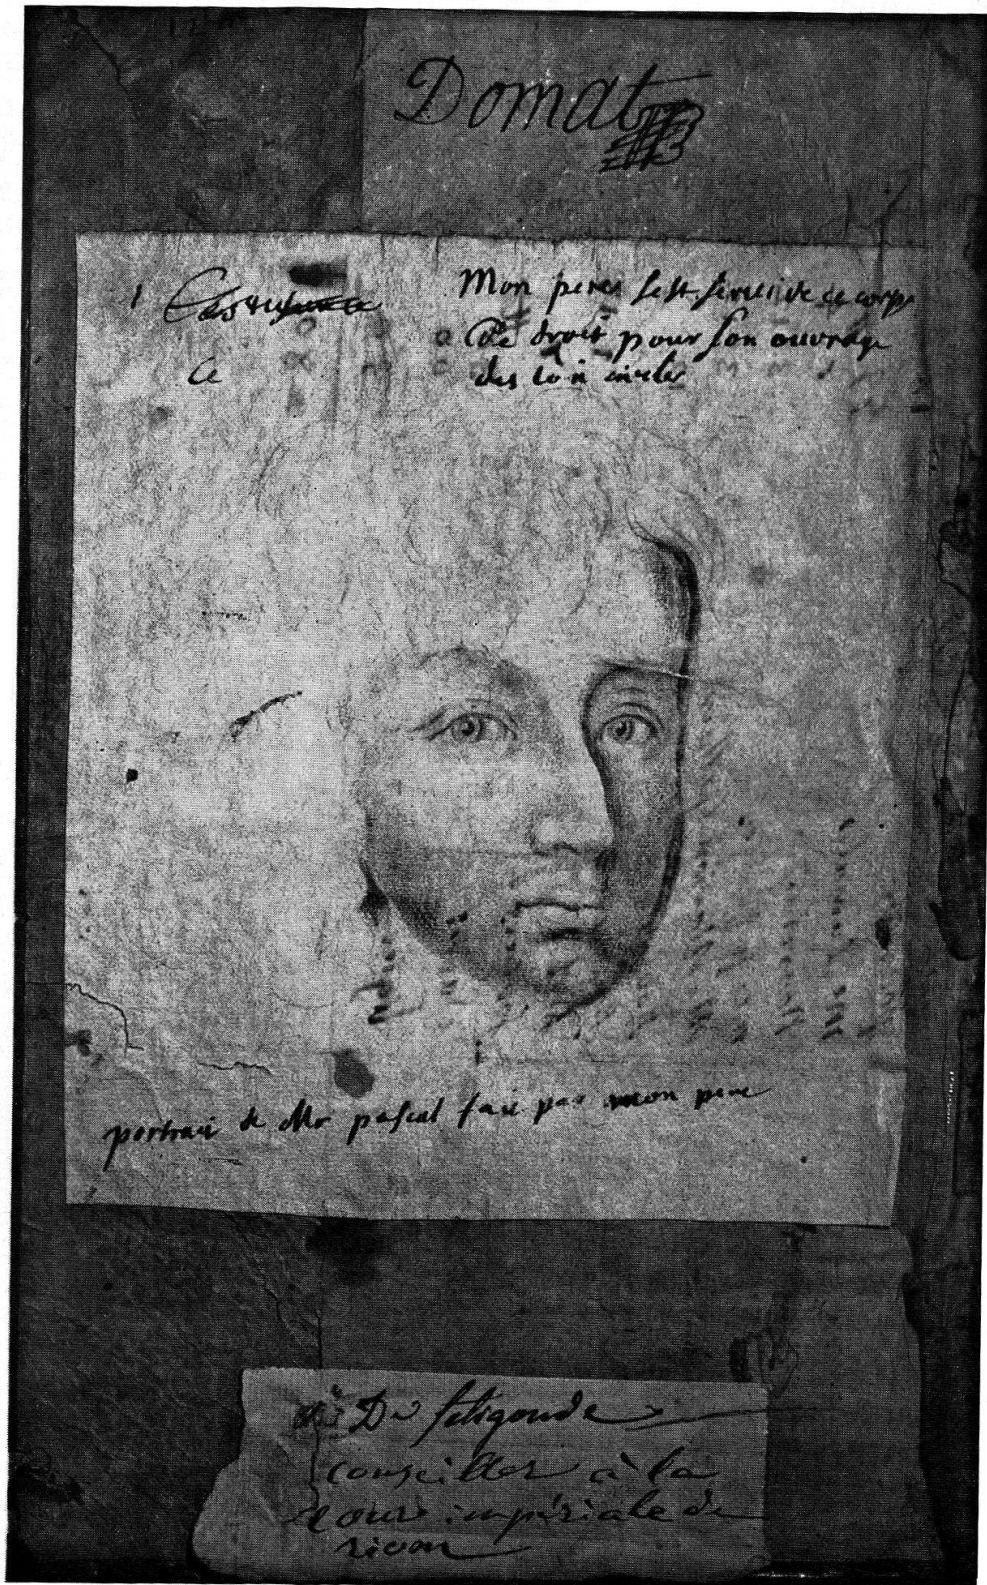 Domat
Ce
Mon pere sest servi de ce corps
De droit pour son ouvrage
des loix civiles
portrait de Mr pascal fait par mon pere
De feligonde
conseiller à la
cour impériale de
riom